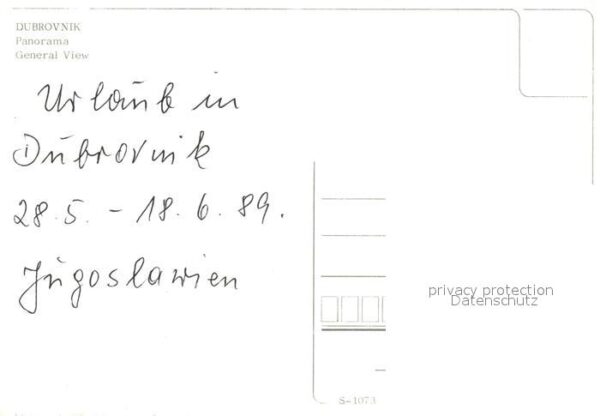 DUBROVNIK
Panorama
General View
Urlaub in
Dubrovnik
28.5. - 18.6.89.
Jugoslawien
privacy protection
Datenschutz
S-1073